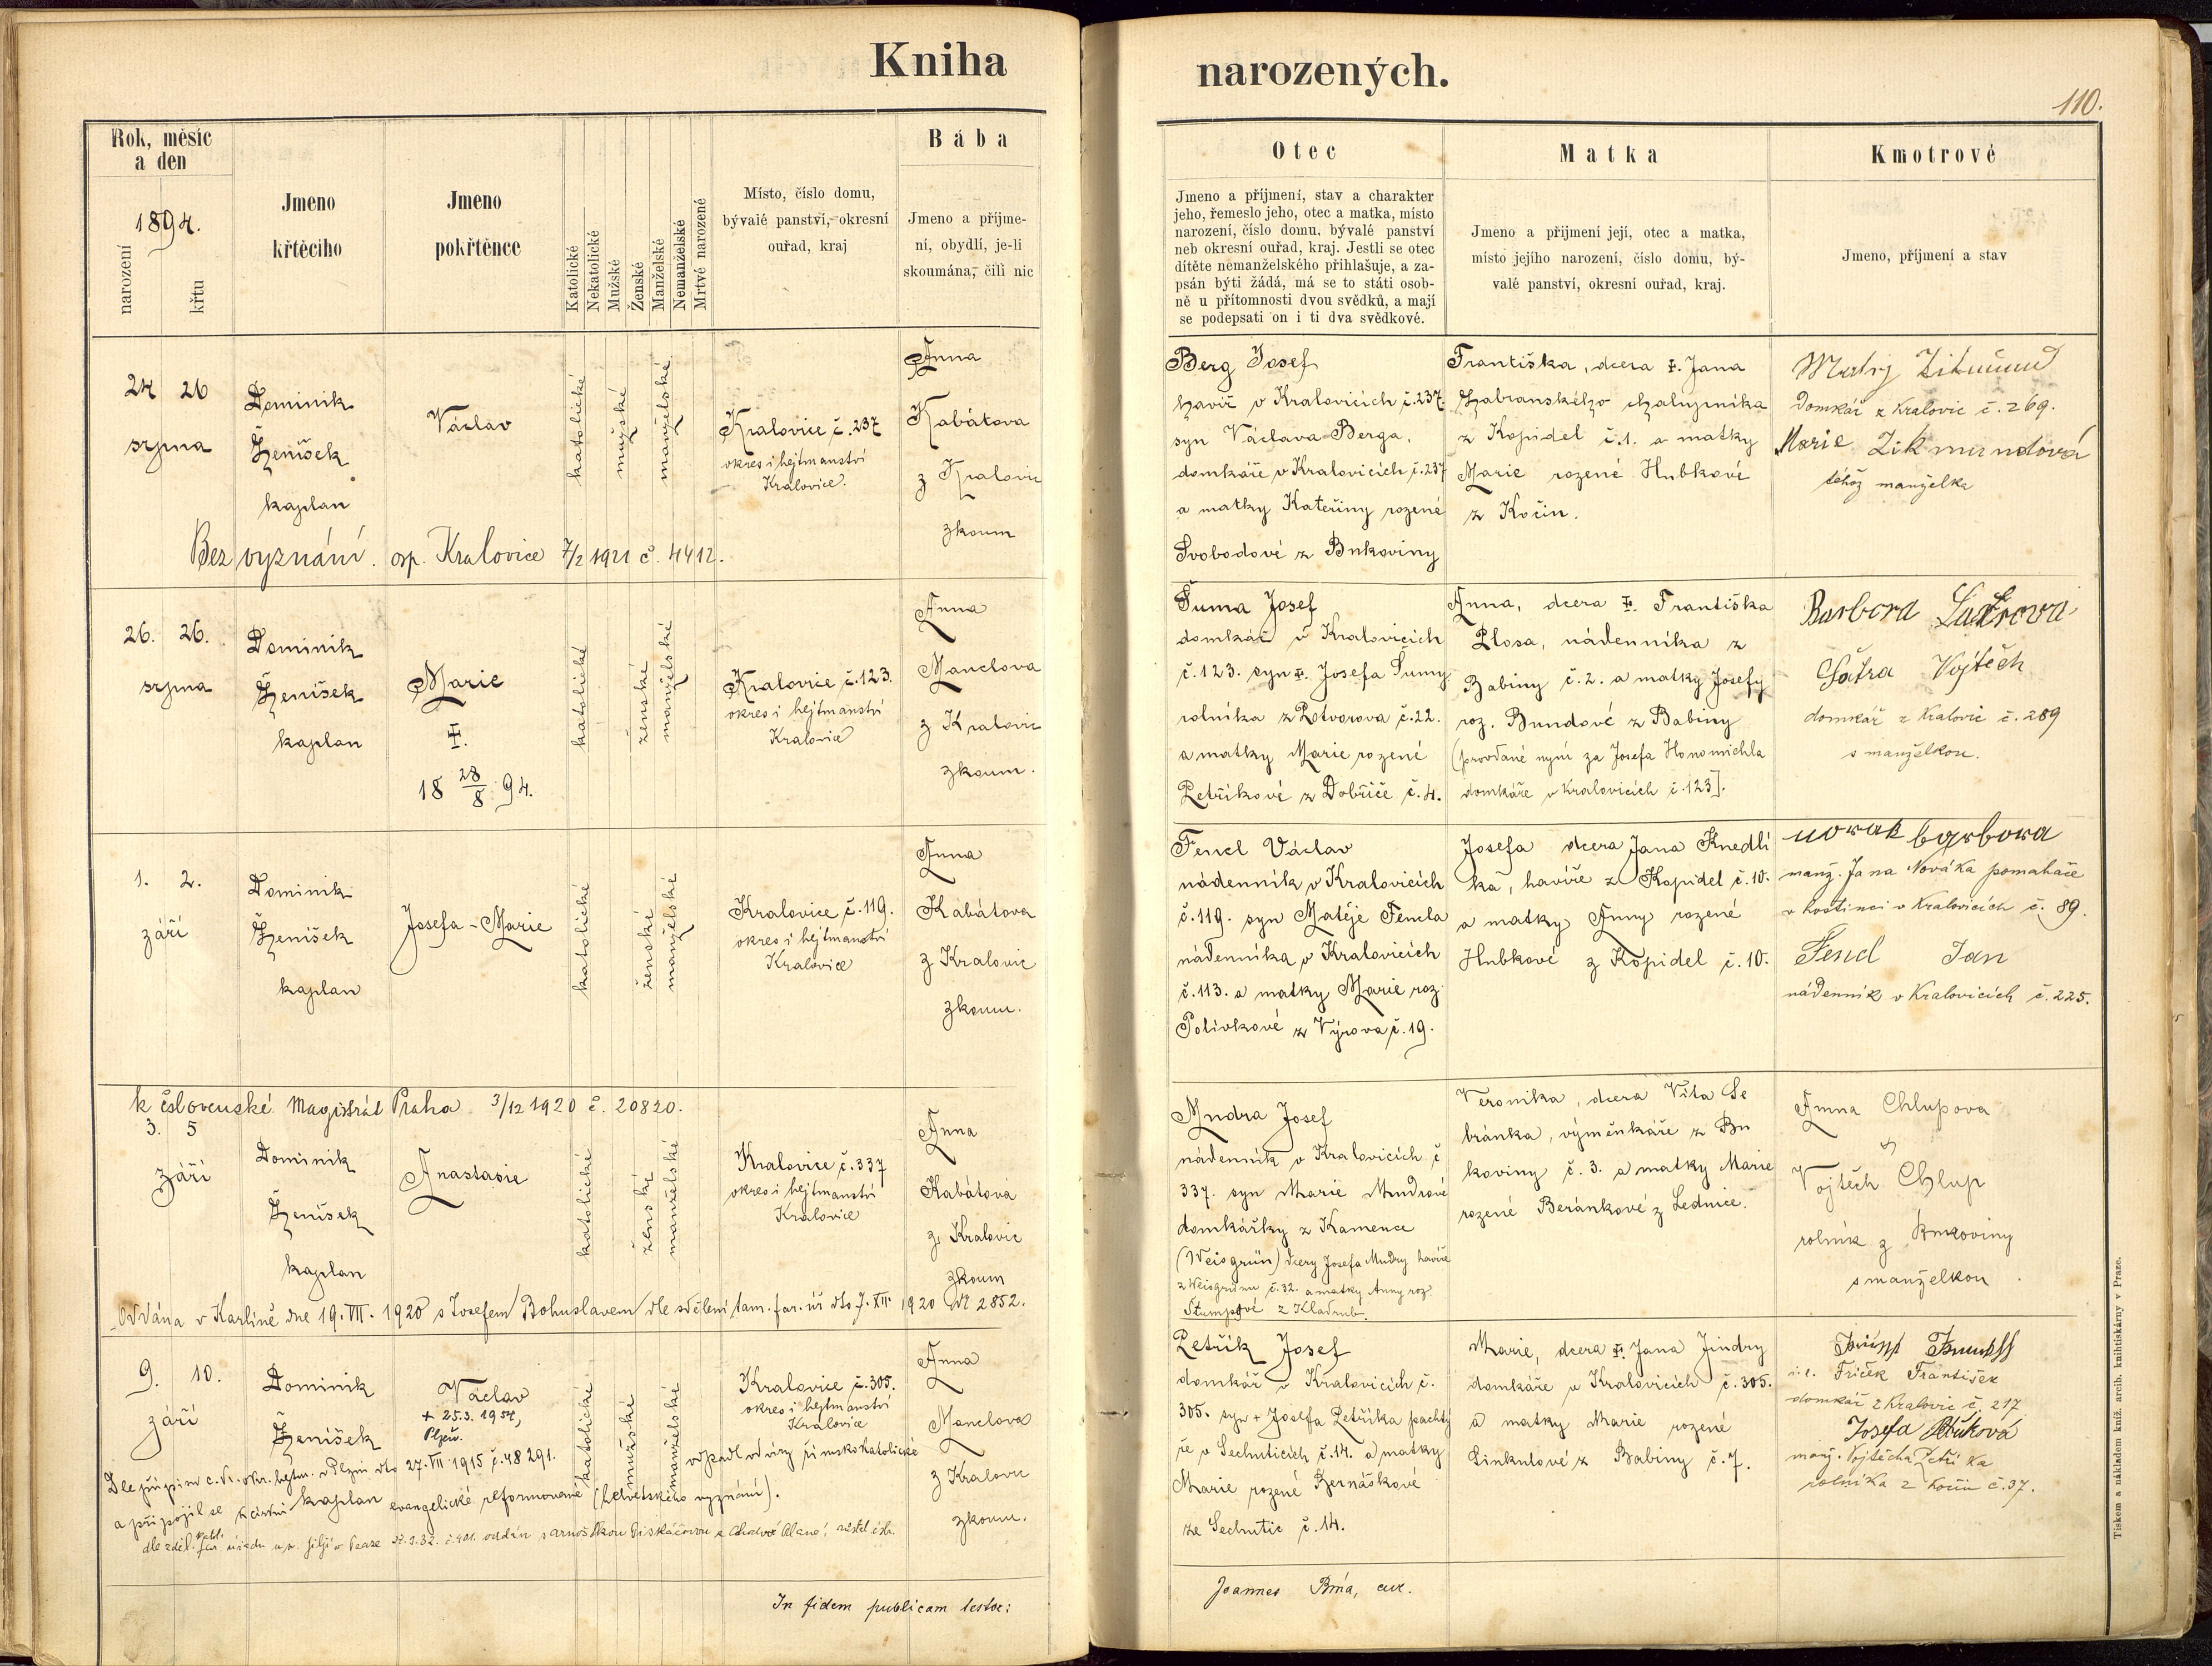 Kniha narozených.
110.
Rok, měsíc
a den
1894.
narození
křtu
Jmeno
křtěcího
Jmeno
pokřtěnce
Katolické
Nekatolické
Mužské
Ženské
Manželské
Nemanželské
Mrtvě narozené
Místo, číslo domu,
bývalé panství, okresní
ouřad, kraj
Bába
Jmeno a příjme-
ní, obydlí, je-li
skoumána, čili nic
Otec
Jmeno a příjmení, stav a charakter
jeho, řemeslo jeho, otec a matka, místo
narození, číslo domu, bývalé panství
neb okresní ouřad, kraj. Jestli se otec
dítěte nemanželského přihlašuje, a za-
psán býti žádá, má se to státi osob-
ně u přítomnosti dvou svědků, a mají
se podepsati on i ti dva svědkové.
Matka
Jmeno a přijmení její, otec a matka,
místo jejího narození, číslo domu, bý-
valé panství, okresní ouřad, kraj.
Kmotrové
Jmeno, příjmení a stav
24 26
srpna
Dominik
Ženíšek
kaplan
Václav
katolické
mužské
manželské
Kralovice č. 237
okres i hejtmanství
Kralovice.
Anna
Kabátova
z Kralovic
zkoum
Bez vyznání. osp. Kralovice 7/2 1921 č. 4412.
Berg Josef
havíř v Kralovicích č. 237.
syn Václava Berga,
domkáře v Kralovicích č. 237
a matky Kateřiny rozené
Svobodové z Bukoviny
Františka, dcera +. Jana
Habranského chalupníka
z Kopidel č. 1. a matky
Marie rozené Hubkové
z Kočin.
Matěj Zikmund
Domkář z Kralovic č. 269.
Marie Zikmundová
téhož manželka
26. 26.
srpna
Dominik
Ženíšek
kaplan
Marie
+.
18 28/8 94.
katolické
ženské
manželské
Kralovice č. 123.
okres i hejtmanství
Kralovice
Anna
Manclova
z Kralovic
zkoum.
Šuma Josef
domkář v Kralovicích
č. 123. syn +. Josefa Šumy
rolníka z Potvorova č. 22.
a matky Marie rozené
Petříkové z Dobříče č. 4.
Anna, dcera +. Františka
Plosa, nádenníka z
Babiny č. 2. a matky Josefy
roz. Bundové z Babiny
(provdané nyní za Josefa Honomichla
domkáře v Kralovicích č. 123].
Barbora
Šatra Vojtěch
domkář z Kralovic č. 289
s manželkou.
1. 2.
září
Dominik
Ženíšek
kaplan
Josefa - Marie
katolické
ženské
manželské
Kralovice č. 119.
okres i hejtmanství
Kralovice
Anna
Kabátova
z Kralovic
zkoum.
Fencl Václav
nádenník v Kralovicích
č. 119. syn Matěje Fencla
nádenníka v Kralovicích
č. 113. a matky Marie roz.
Polívkové z Výrova č. 19.
Josefa dcera Jana Knedlí
ka, havíře z Kopidel č. 10.
a matky Anny rozené
Hubkové z Kopidel č. 10.
novak barbora
manž. Jana Nováka pomahače
v hostinci v Kralovicích č. 89.
Fencl Jan
nádenník v Kralovicích č. 225.
k čsslovenské Magistrát Praha 3/12 1920 č. 20820.
3. 5
září
Dominik
Ženíšek
kaplan
Anastasie
katolické
ženské
manželské
Kralovice č. 337
okres i hejtmanství
Kralovice
Anna
Kabátová
z Kralovic
zkoum
Oddána v Karlíně dne 19. VII. 1920 s Josefem Bohuslavem dle sdělení tam. far. úř. dto 7. XII. 1920 № 2852.
Mudra Josef
nádenník v Kralovicích č
337. syn Marie Mudrové
domkářky z Kamence
(Weisgrün) dcery Josefa Mudry havíře
z Weisgrünu č. 32. a matky Anny roz.
z Kladrub.
Veronika, dcera Víta Be
bránka, výměnkáře z Bu
koviny č. 3. a matky Marie
rozené Beránkové z Lednice.
Anna Chlupova
Vojtěch Chlup
rolník z Bukoviny
s manželkou
9. 10.
září
Dominik
Ženíšek
kaplan
Václav
+ 25.3. 1954,
Plzeň.
katolické
mužské
manželské
Kralovice č. 305.
okres i hejtmanství
Kralovice
Anna
Manclova
z Kralovic
zkoum.
Dle přípisu c. k. okr. hejtm. v Plzni dto 27. VII. 1915 č. 48291. odpadl od víry římskokatolické
a připojil se k církvi evangelické reformované (helvetského vyznání).
Petřík Josef
domkář v Kralovicích č.
305. syn + Josefa Petříka pachtý
ře v Sechuticích č. 14. a matky
Marie rozené Bernáškové
ze Sechutic č. 14.
Marie, dcera +. Jana Jindry
domkáře v Kralovicích č. 305.
a matky Marie rozené
Sinkulové z Babiny č. 7.
i. e. Friček František
domkář z Kralovic č. 217
Josefa
manž. Vojtěcha Petříka
rolníka z Kočín č. 37.
In fidem publicam testor:
Joannes Brňa, cur.
Tiskem a nákladem kníž. arcib. knihtiskárny v Praze.